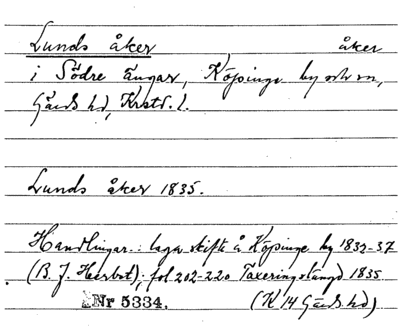 Lunds åker åker
i Södre ängar, Köpinge by och sn,
Gärds hd, Krstd. l.
Lunds åker 1835.
Handlingar: laga skifte å Köpinge by 1833-37
(B. J. Herbst); fol 202-220 Taxeringslängd 1835
Nr 5334. (K 14 Gärds hd)